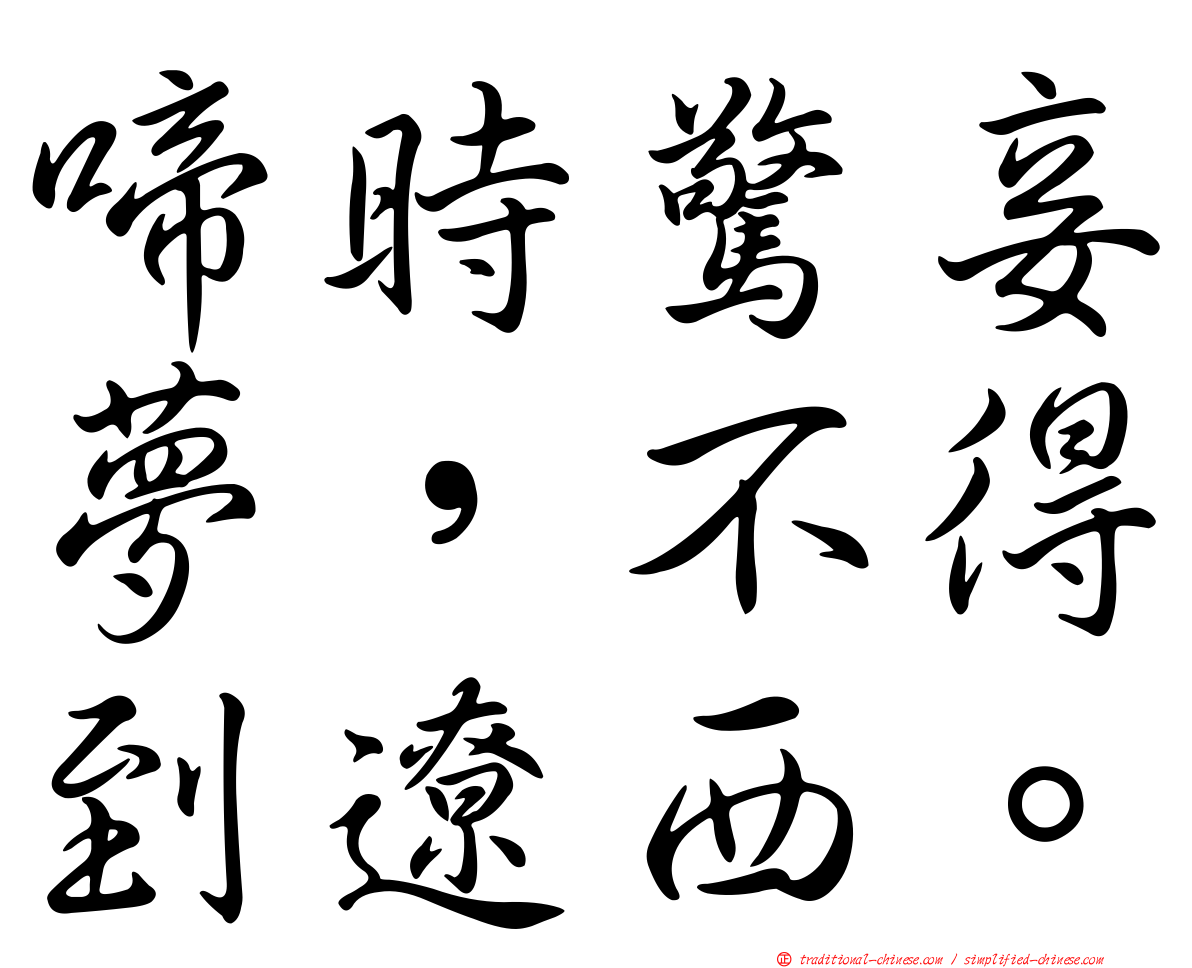 啼時驚妾
夢，不得
到遼西。
正 traditional-chinese.com / simplified-chinese.com